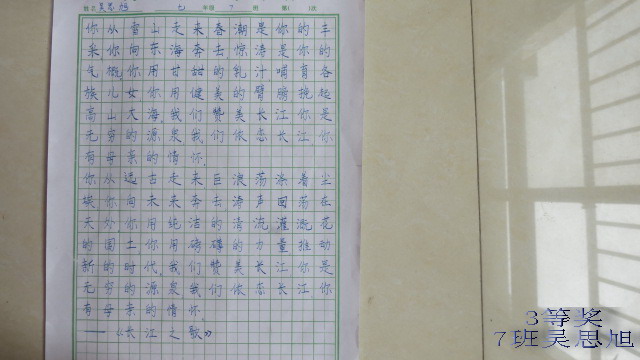 姓名吴思旭 七 年级 7 班 第1 1次
你从雪山走来春潮是你的丰
采你向东海奔去惊涛是你的
气概你用甘甜的乳汁哺育各
族儿女你用健美的臂膀挽起
高山大海我们赞美长江你是
无穷的源泉我们依恋长江你
有母亲的情怀
你从远古走来巨浪荡涤着尘
埃你向未来奔去涛声回荡在
天外你用纯洁的清流灌溉花
的国土你用磅礴的力量推动
新的时代我们赞美长江你是
无穷的源泉我们依恋长江你
有母亲的情怀
——《长江之歌》
3等奖
7班吴思旭